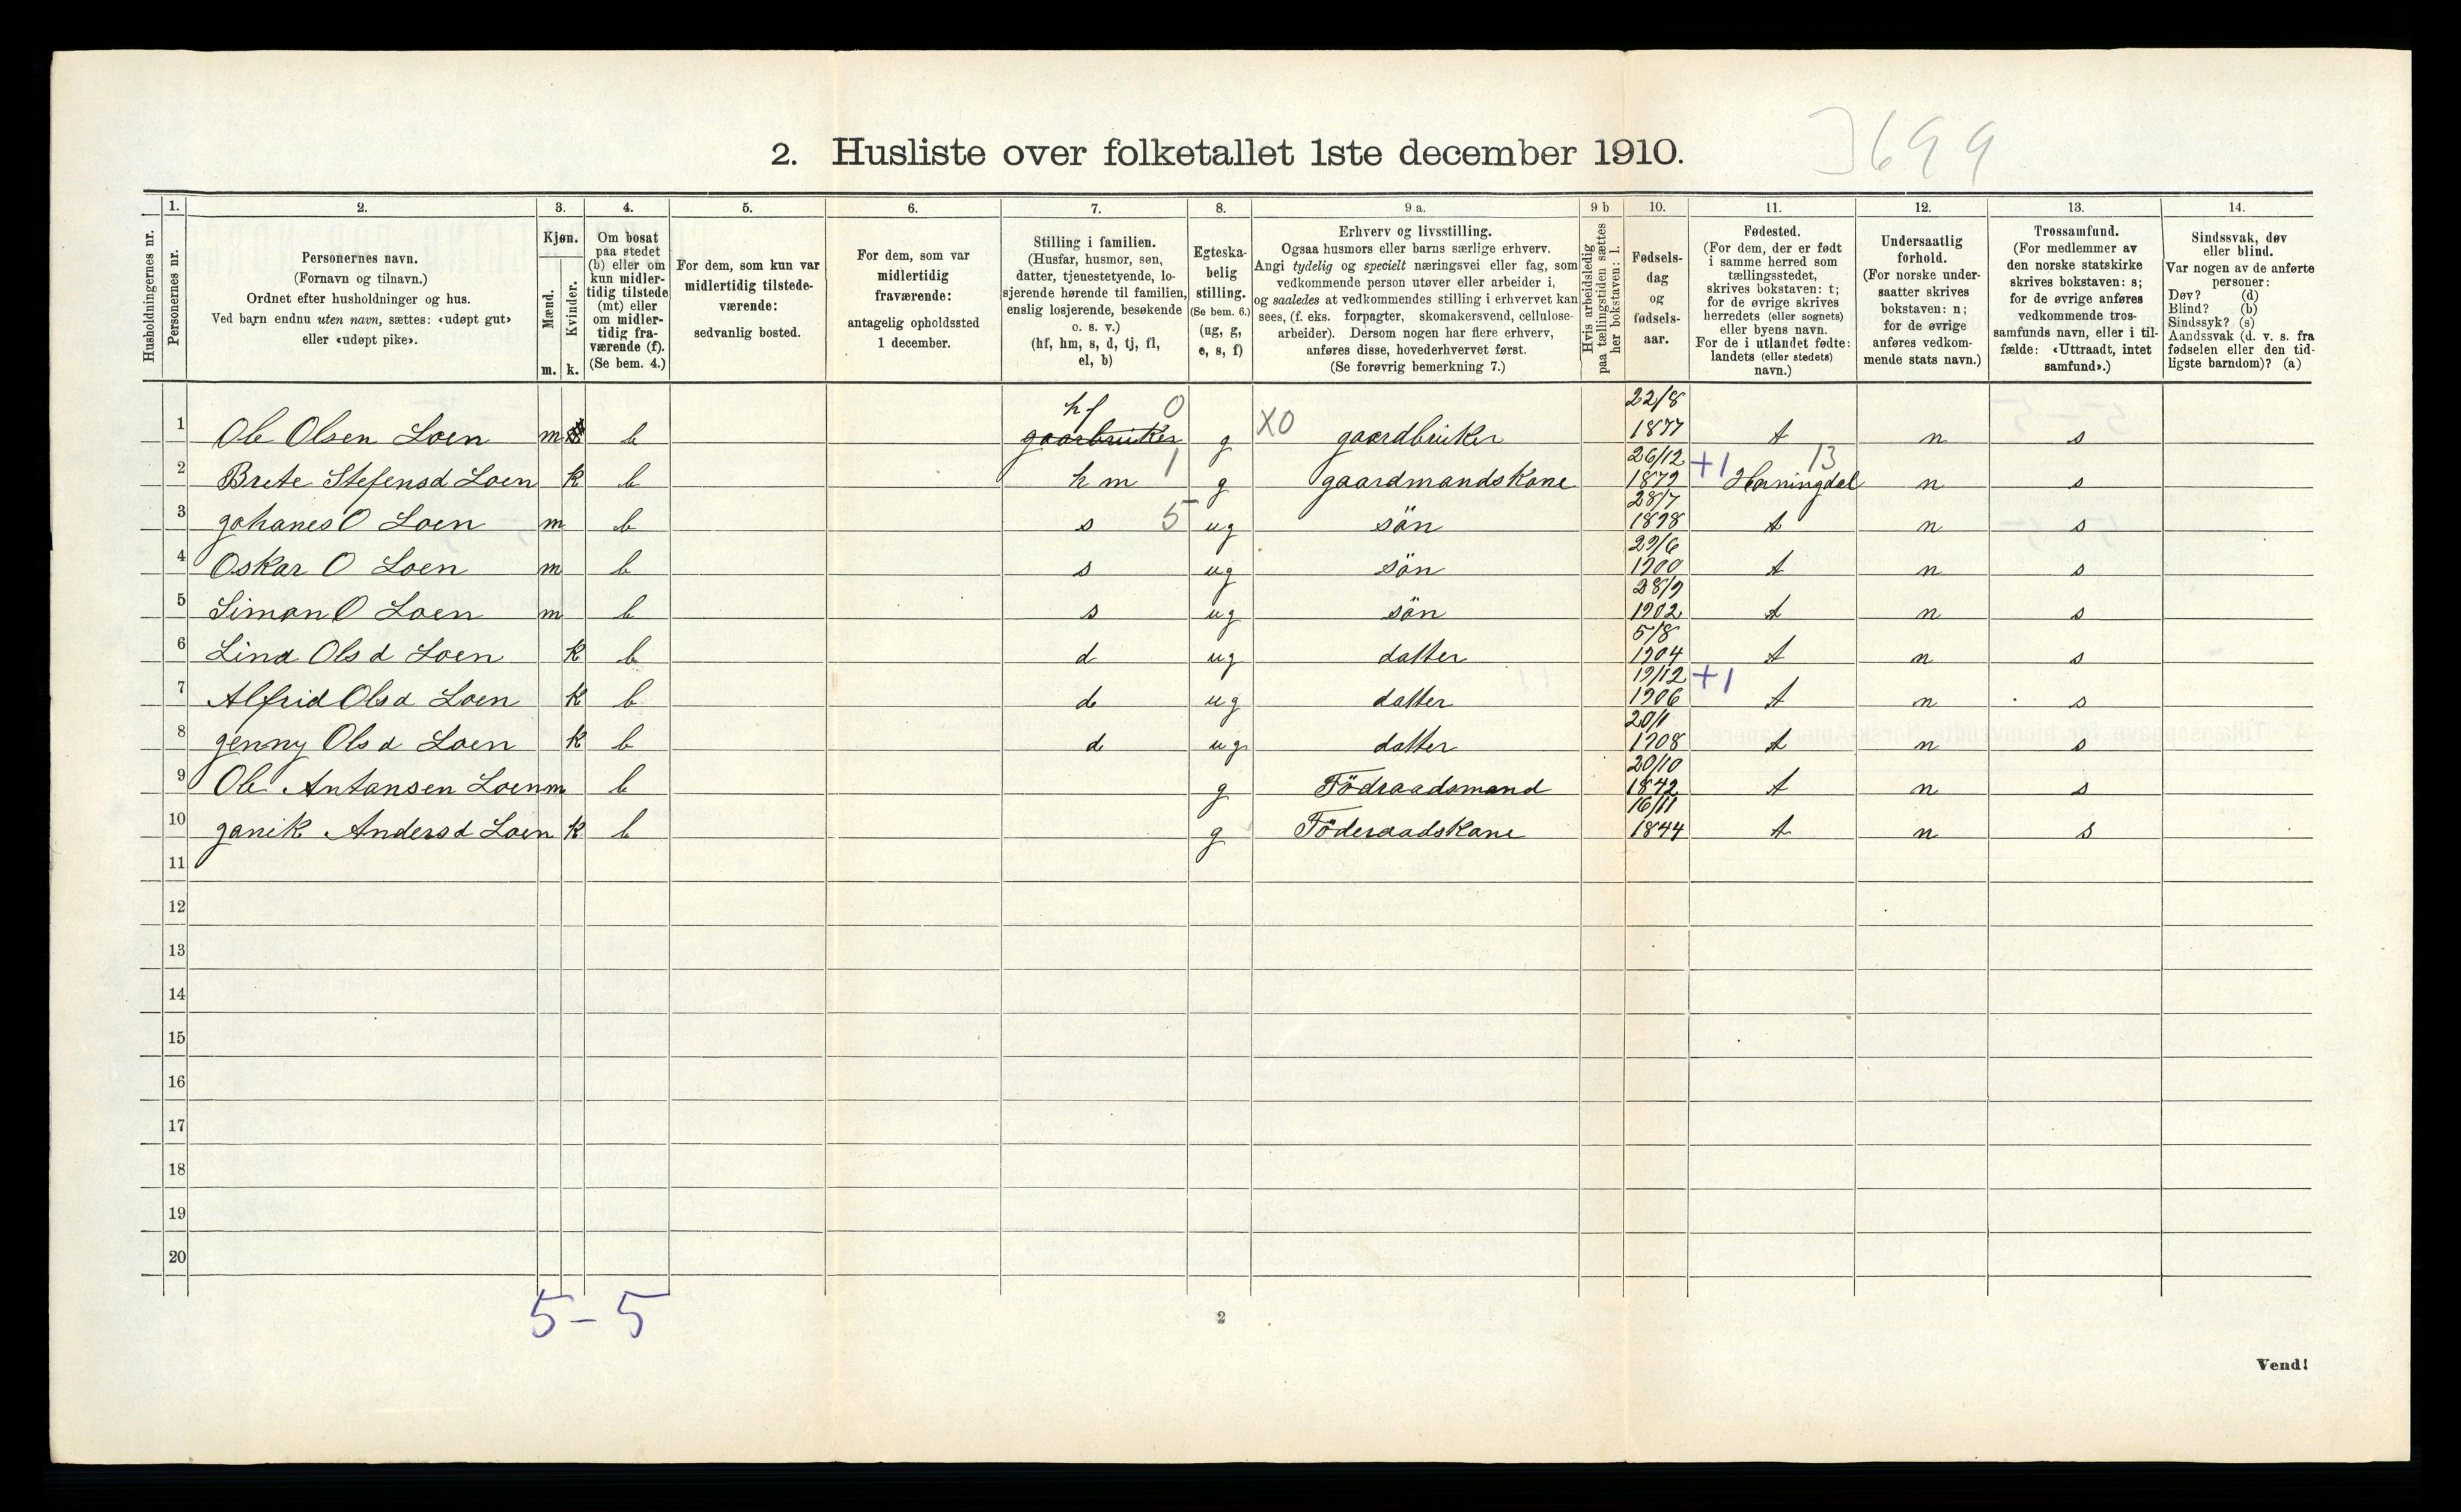 3699
2. Husliste over folketallet 1ste december 1910.
Husholdningernes nr.
1.
Personernes nr.
2.
Personernes navn.
(Fornavn og tilnavn.)
Ordnet efter husholdninger og hus.
Ved barn endnu uten navn, sættes: «udøpt gut»
eller «udøpt pike».
3.
Kjøn.
Mænd.
Kvinder.
m. k.
4.
Om bosat
paa stedet
(b) eller om
kun midler-
tidig tilstede
(mt) eller
om midler-
tidig fra-
værende (f).
(Se bem. 4.)
5.
For dem, som kun var
midlertidig tilstede-
værende:
sedvanlig bosted.
6.
For dem, som var
midlertidig
fraværende:
antagelig opholdssted
1 december.
7.
Stilling i familien.
(Husfar, husmor, søn,
datter, tjenestetyende, lo-
sjerende hørende til familien,
enslig losjerende, besøkende
o. s. v.)
(hf, hm, s, d, tj, fl,
el, b)
8.
Egteska-
belig
stilling.
(Se bem. 6.)
(ug, g,
e, s, f)
9 a.
Erhverv og livsstilling.
Ogsaa husmors eller barns særlige erhverv.
Angi tydelig og specielt næringsvei eller fag, som
vedkommende person utøver eller arbeider i,
og saaledes at vedkommendes stilling i erhvervet kan
sees, (f. eks. forpagter, skomakersvend, cellulose-
arbeider). Dersom nogen har flere erhverv,
anføres disse, hovederhvervet først.
(Se forøvrig bemerkning 7.)
9 b
Hvis arbeidsledig
paa tællingstiden sættes
her bokstaven: l.
10.
Fødsels-
dag
og
fødsels-
aar.
11.
Fødested.
(For dem, der er født
i samme herred som
tællingsstedet,
skrives bokstaven: t;
for de øvrige skrives
herredets (eller sognets)
eller byens navn.
For de i utlandet fødte:
landets (eller stedets)
navn.)
12.
Undersaatlig
forhold.
(For norske under-
saatter skrives
bokstaven: n;
for de øvrige
anføres vedkom-
mende stats navn.)
13.
Trossamfund.
(For medlemmer av
den norske statskirke
skrives bokstaven: s;
for de øvrige anføres
vedkommende tros-
samfunds navn, eller i til-
fælde: «Uttraadt, intet
samfund».)
14.
Sindssvak, døv
eller blind.
Var nogen av de anførte
personer:
Døv? (d)
Blind? (b)
Sindssyk? (s)
Aandssvak (d. v. s. fra
fødselen eller den tid-
ligste barndom)? (a)
hf 0 22/8
1 Ole Olsen Loen m b gaarbruker g X0 gaardbruker 1877 t n s
1 26/12 +1 13
2 Brete Stefensd Loen k b h m g gaardmandskone 1879 Horningdal n s
28/7
3 johanes O Loen m b s 5 ug sön 1898 t n s
29/6
4 Oskar O Loen m b s ug sön 1900 t n s
28/9
5 Simon O Loen m b s ug sön 1902 t n s
5/8
6 Lina Ols d Loen k b d ug datter 1904 t n s
19/12 +1
7 Alfrid Olsd Loen k b d ug datter 1906 t n s
20/1
8 jenny Ols d Loen k b d ug datter 1908 t n s
20/10
9 Ole Antonsen Loen m b g Födraadsmand 1842 t n s
16/11
10 janik Andersd Loen k b g Föderaadskone 1844 t n s
11
12
13
14
15
16
17
18
19
20
5 - 5
2
Vend!